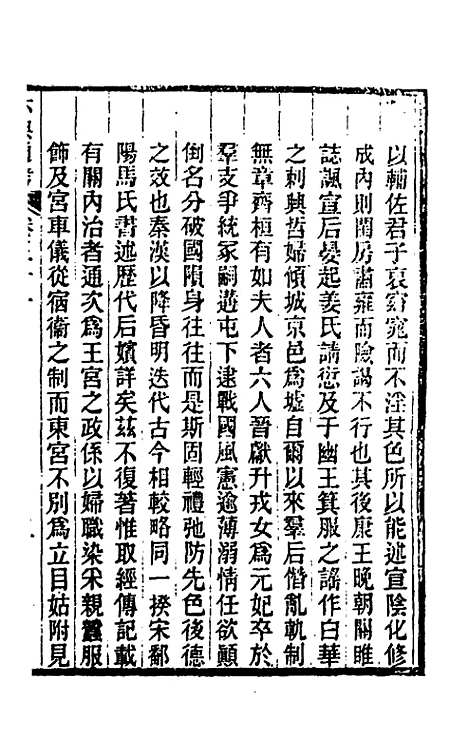 以輔佐君子哀窈窕而不淫其色所以能述宣陰化修
成內則閨房肅雍而險謁不行也其後康王晚朝關雎
誌諷宣后晏起姜氏請愆及于幽王箕服之謠作白華
之刺興哲婦傾城京邑爲墟自爾以來羣后僭亂軌制
無章齊桓有如夫人者六人晉獻升戎女爲元妃卒於
羣支爭統冢嗣遘屯下逮戰國風憲逾薄溺情任欲顛
倒名分破國隕身往往而是斯固輕禮弛防先色後德
之效也秦漢以降昏明迭代古今相較略同一揆宋鄱
陽馬氏書述歷代后嬪詳矣茲不復著惟取經傳記載
有關內治者通次爲王宮之政係以婦職染采親蠶服
飾及宮車儀從宿衞之制而東宮不別爲立目姑附見
六典通考